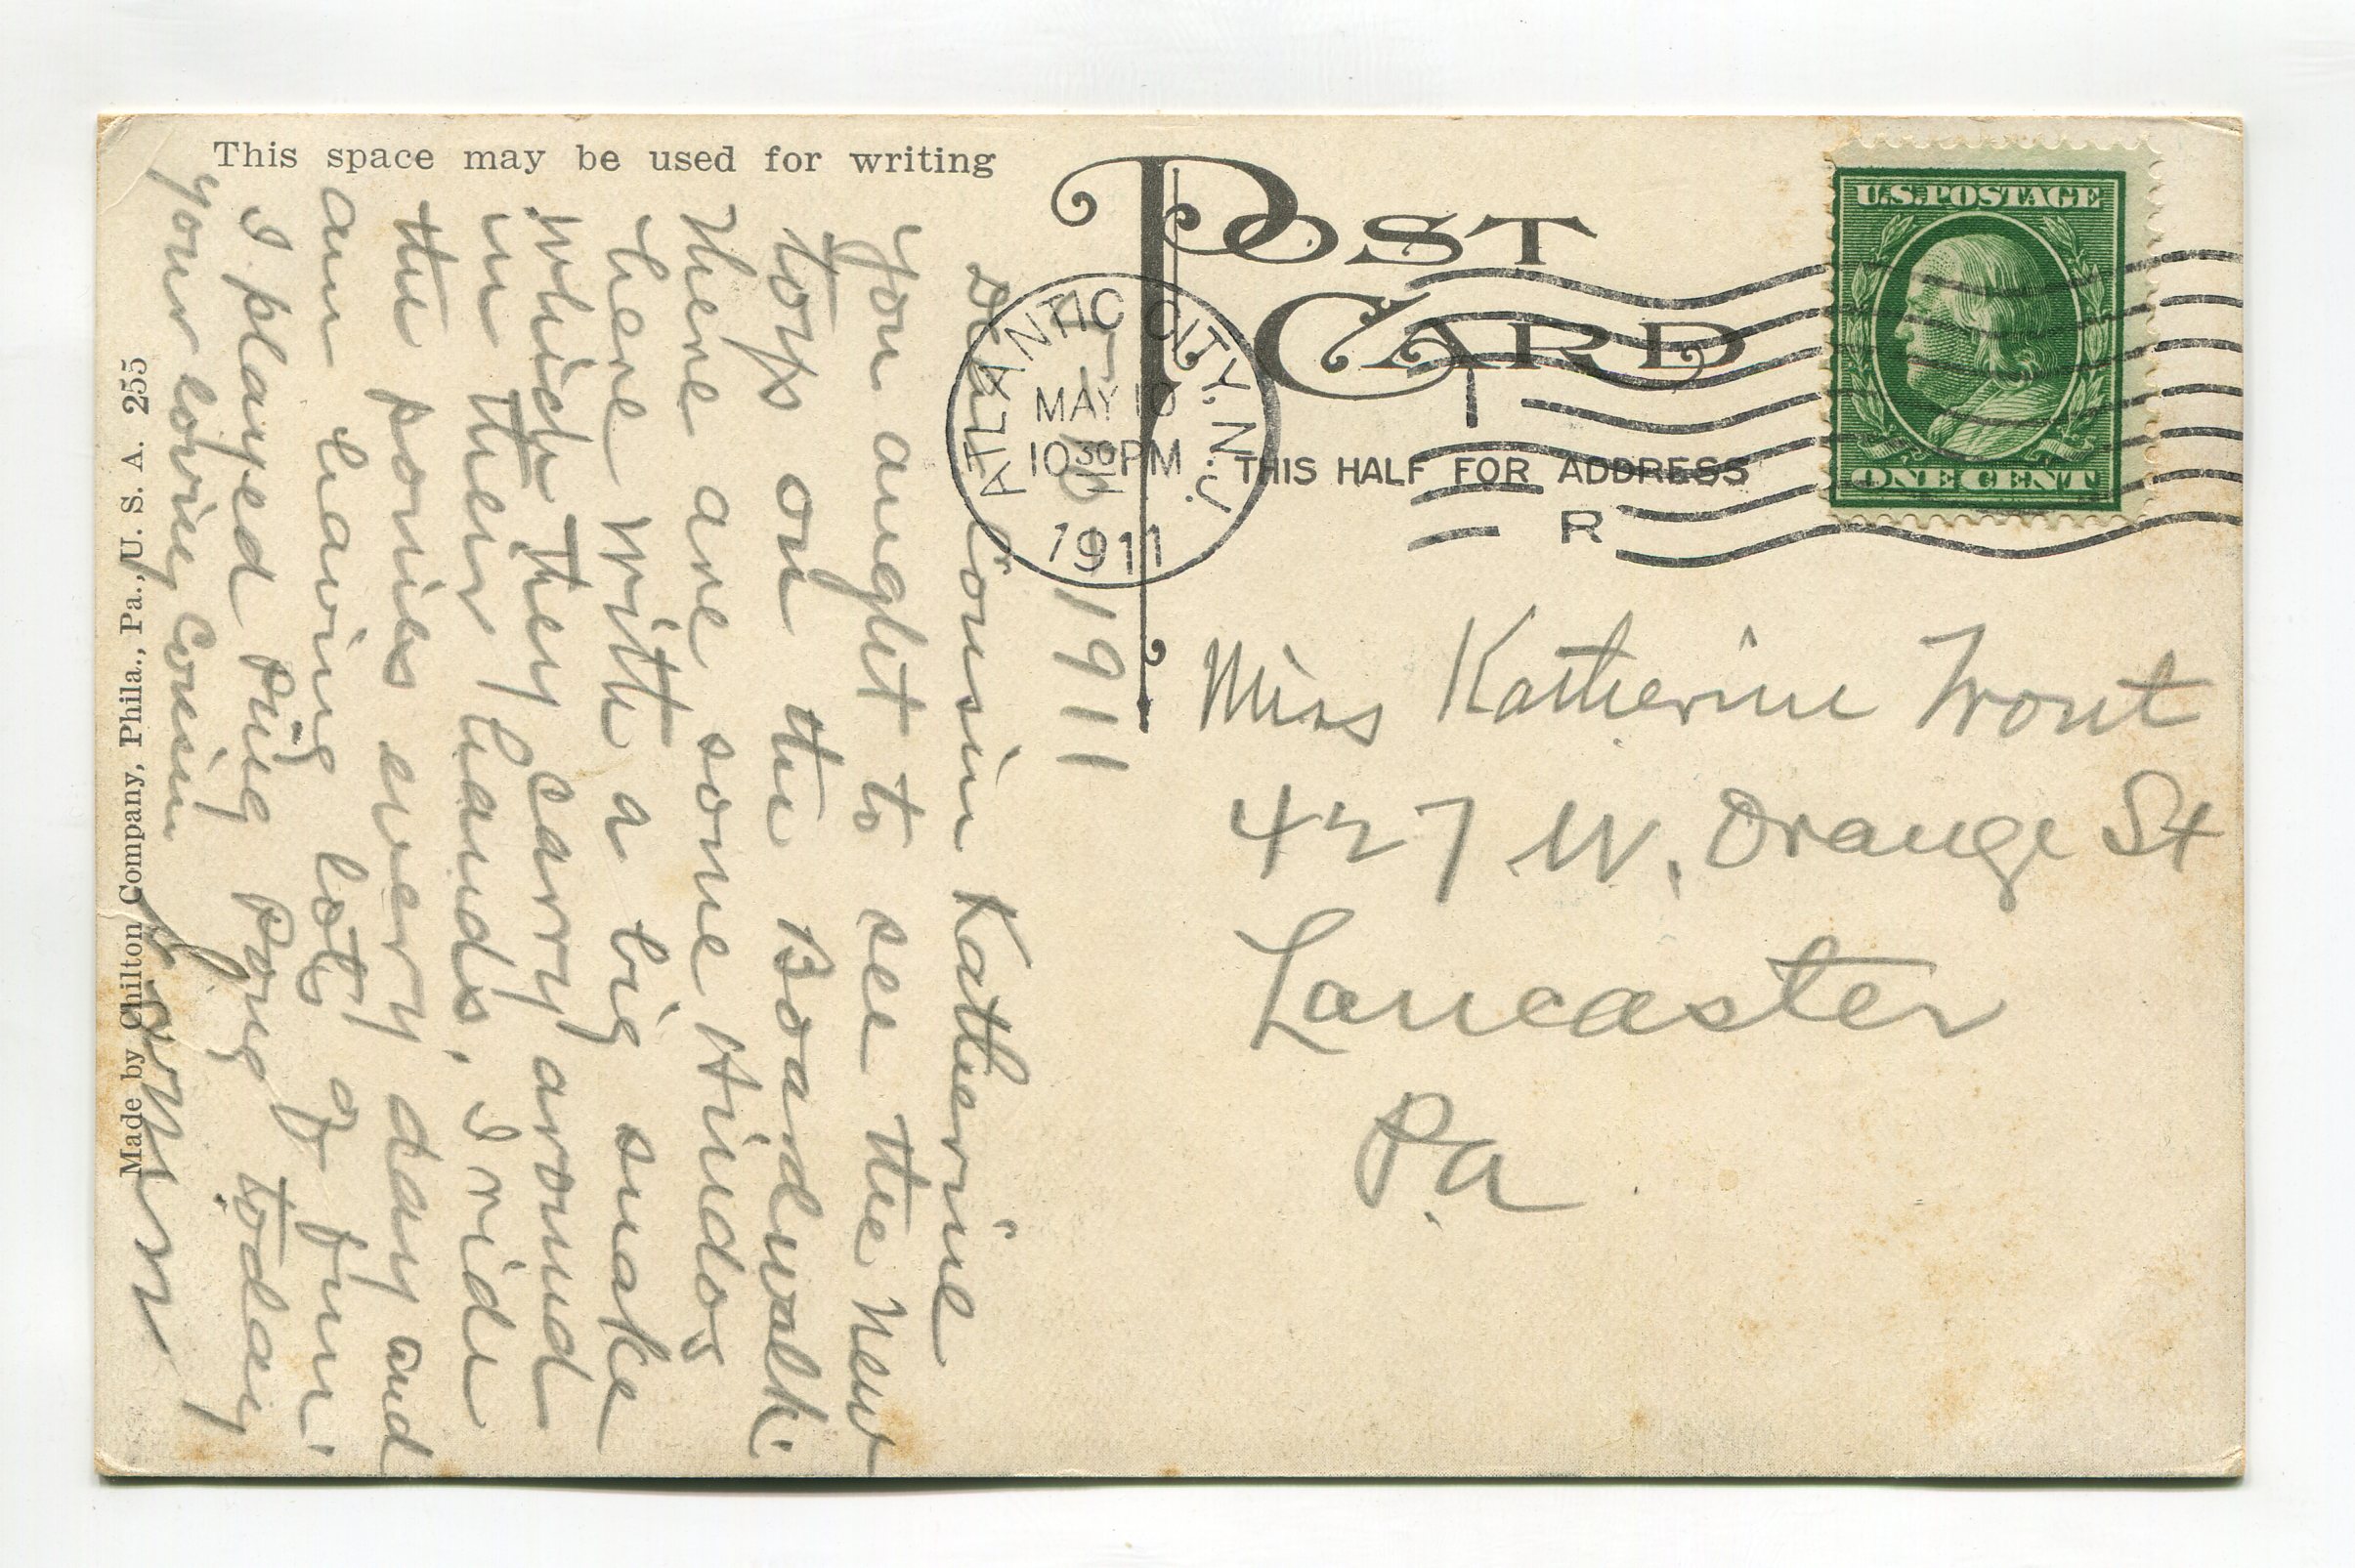 This space may be used for writing
POST CARD
THIS HALF FOR ADDRESS
U.S. POSTAGE
ONE CENT
ATLANTIC CITY, N.J.
MAY 10
10 30 PM
1911
R
5-10-1911
Dear Cousin Katherine
You aught to see the new
toys on the Boardwalk.
There are some Hindos
here with a big snake
which they carry around
in their hands. I ride
the ponies every day and
am having lots of fun.
I played Ping Pong today
your loving cousin
Miss Katherine Trout
427 W. Orange St
Lancaster
Pa.
Made by Chilton Company, Phila., Pa., U. S. A. 255